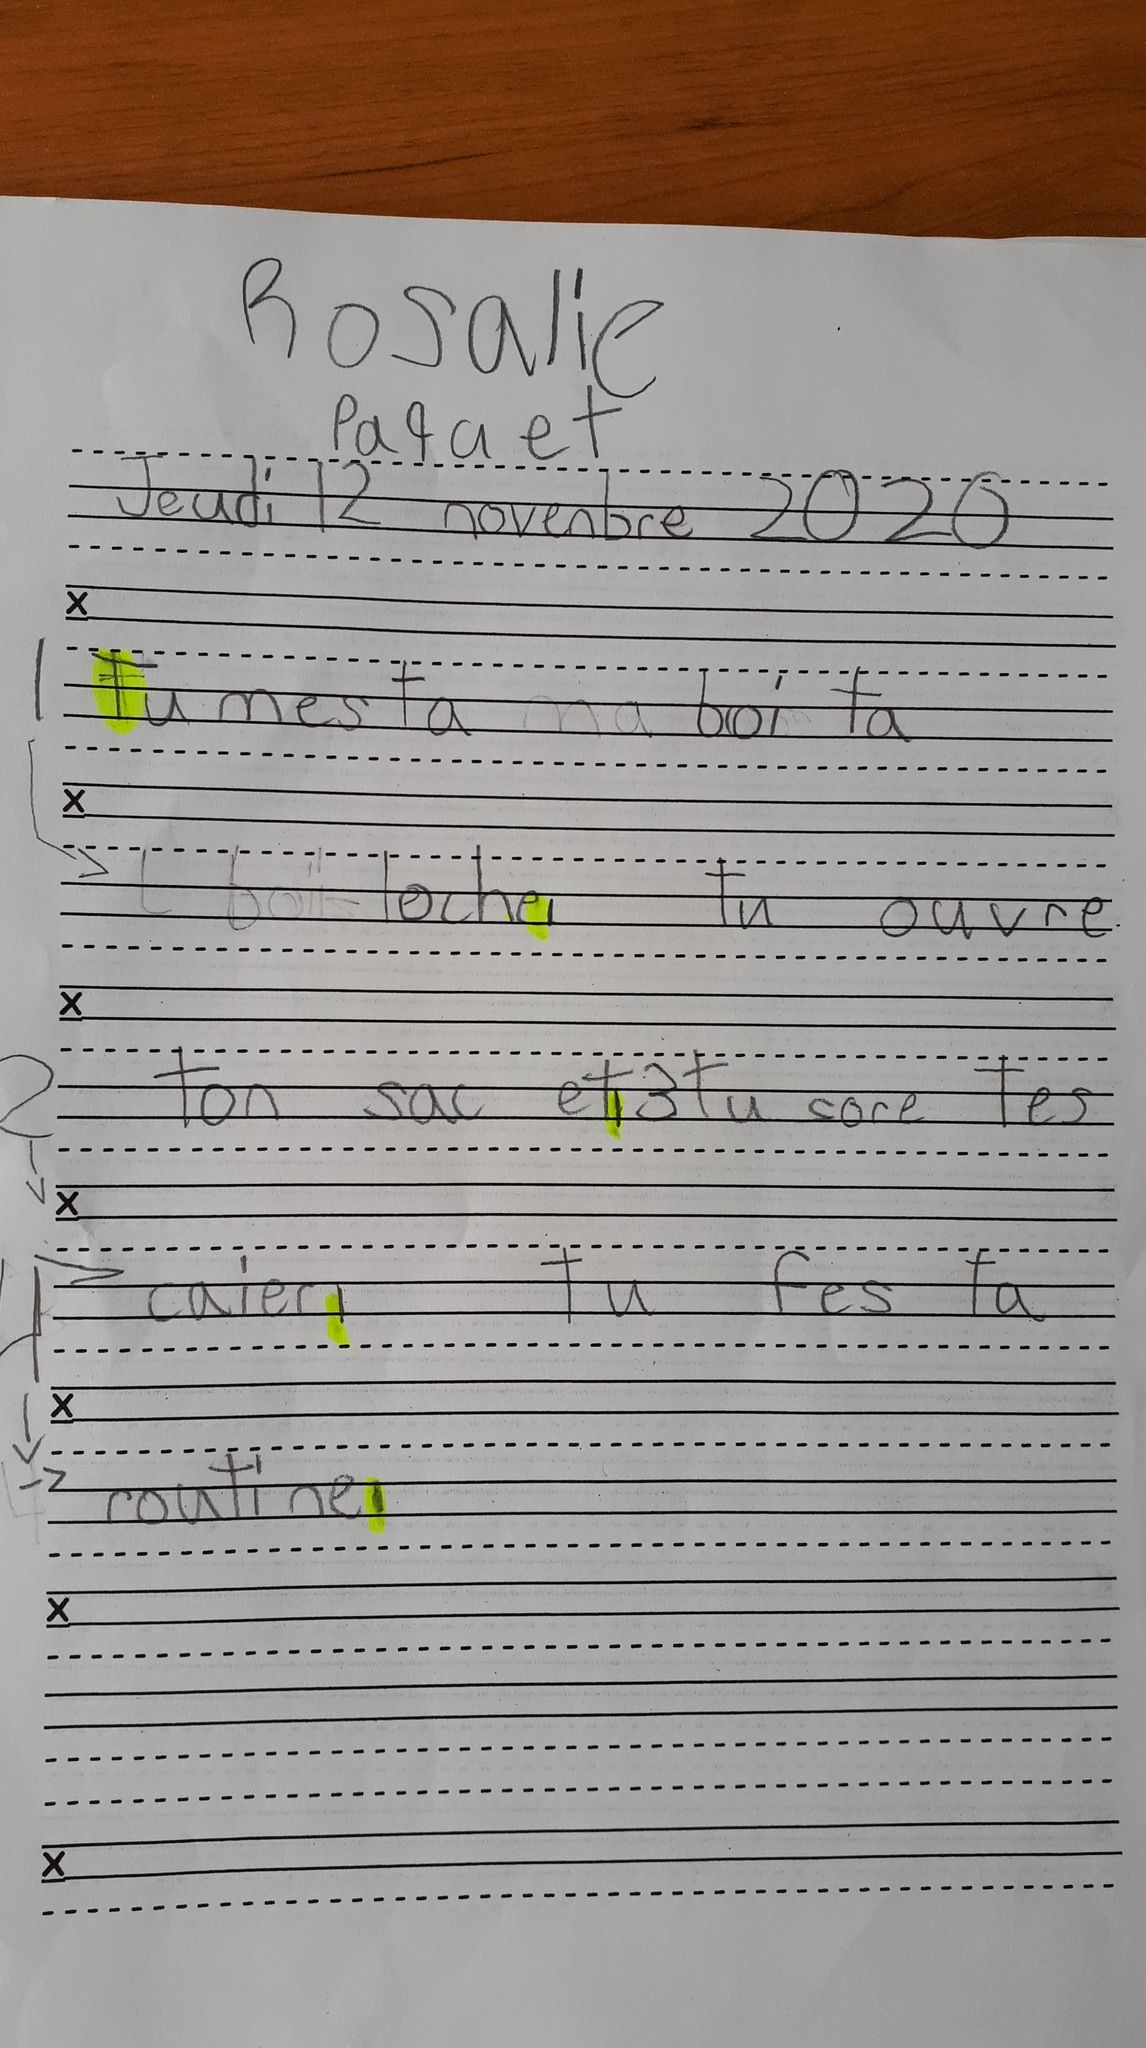 Rosalie
Paquet
Jeudi 12 novenbre 2020
x
1 Tu mes ta boi ta
x
loche, tu ouvre
x
2 ton sac et, 3 tu sore tes
x
caier, tu fes ta
x
routine,
x
x